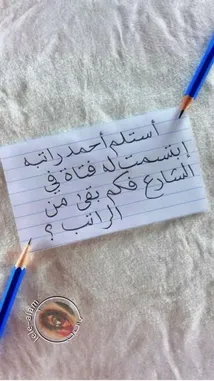 أستلم أحمد راتبه
إبتسمت له فتاة في
الشارع فكم بقى من
الراتب ؟